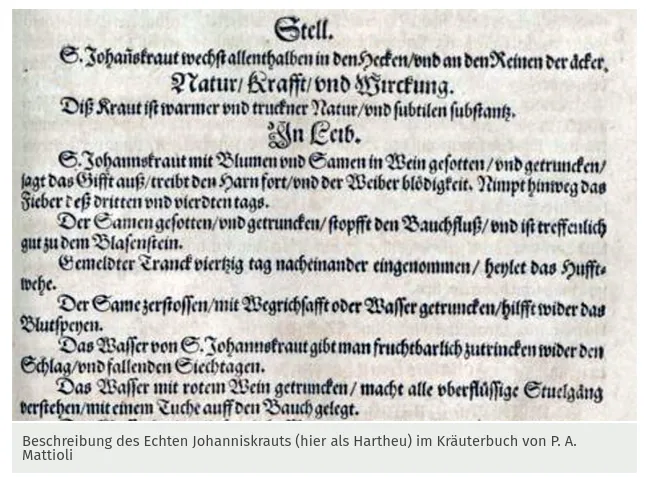 Stell.
S. Johañskraut wechst allenthalben in den Hecken/vnd an den Reinen der äcker.
Natur/Krafft/vnd Wirckung.
Diß Kraut ist warmer vnd truckner Natur/vnd subtilen substantz.
In Leib.
S. Johannskraut mit Blumen vnd Samen in Wein gesotten/vnd getruncken/
jagt das Gifft auß/treibt den Harn fort/vnd der Weiber blödigkeit. Nimpt hinweg das
Fieber deß dritten vnd vierdten tags.
Der Samen gesotten/vnd getruncken/stopfft den Bauchfluß/vnd ist treffenlich
gut zu dem Blasenstein.
Gemeldter Tranck viertzig tag nacheinander eingenommen/ heylet das Hufft-
wehe.
Der Same zerstossen/mit Wegrichsafft oder Wasser getruncken/hilfft wider das
Blutspeyen.
Das Wasser von S. Johannskraut gibt man fruchtbarlich zutrincken wider den
Schlag/vnd fallenden Siechtagen.
Das Wasser mit rotem Wein getruncken/ macht alle vberflüssige Stuelgäng
verstehen/mit einem Tuche auff den Bauch gelegt.
Beschreibung des Echten Johanniskrauts (hier als Hartheu) im Kräuterbuch von P. A.
Mattioli